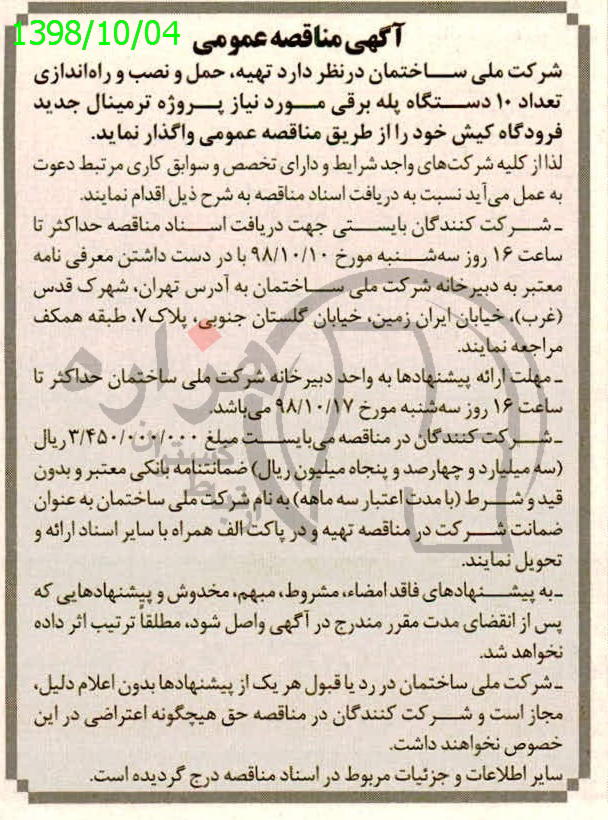 1398/10/04
آگهی مناقصه عمومی
شرکت ملی ساختمان درنظر دارد تهیه، حمل و نصب و راه‌اندازی
تعداد ۱۰ دستگاه پله برقی مورد نیاز پروژه ترمینال جدید
فرودگاه کیش خود را از طریق مناقصه عمومی واگذار نماید.
لذا از کلیه شرکت‌های واجد شرایط و دارای تخصص و سوابق کاری مرتبط دعوت
به عمل می‌آید نسبت به دریافت اسناد مناقصه به شرح ذیل اقدام نمایند.
ـ شرکت کنندگان بایستی جهت دریافت اسناد مناقصه حداکثر تا
ساعت ۱۶ روز سه‌شنبه مورخ ۹۸/۱۰/۱۰ با در دست داشتن معرفی نامه
معتبر به دبیرخانه شرکت ملی ساختمان به آدرس تهران، شهرک قدس
(غرب)، خیابان ایران زمین، خیابان گلستان جنوبی، پلاک ۷، طبقه همکف
مراجعه نمایند.
ـ مهلت ارائه پیشنهادها به واحد دبیرخانه شرکت ملی ساختمان حداکثر تا
ساعت ۱۶ روز سه‌شنبه مورخ ۹۸/۱۰/۱۷ می‌باشد.
ـ شرکت کنندگان در مناقصه می‌بایست مبلغ ۳/۴۵۰/۰۰۰/۰۰۰ ریال
(سه میلیارد و چهارصد و پنجاه میلیون ریال) ضمانتنامه بانکی معتبر و بدون
قید و شرط (با مدت اعتبار سه ماهه) به نام شرکت ملی ساختمان به عنوان
ضمانت شرکت در مناقصه تهیه و در پاکت الف همراه با سایر اسناد ارائه و
تحویل نمایند.
ـ به پیشنهادهای فاقد امضاء، مشروط، مبهم، مخدوش و پیشنهادهایی که
پس از انقضای مدت مقرر مندرج در آگهی واصل شود، مطلقاً ترتیب اثر داده
نخواهد شد.
ـ شرکت ملی ساختمان در رد یا قبول هر یک از پیشنهادها بدون اعلام دلیل،
مجاز است و شرکت کنندگان در مناقصه حق هیچگونه اعتراضی در این
خصوص نخواهند داشت.
سایر اطلاعات و جزئیات مربوط در اسناد مناقصه درج گردیده است.
هزاره